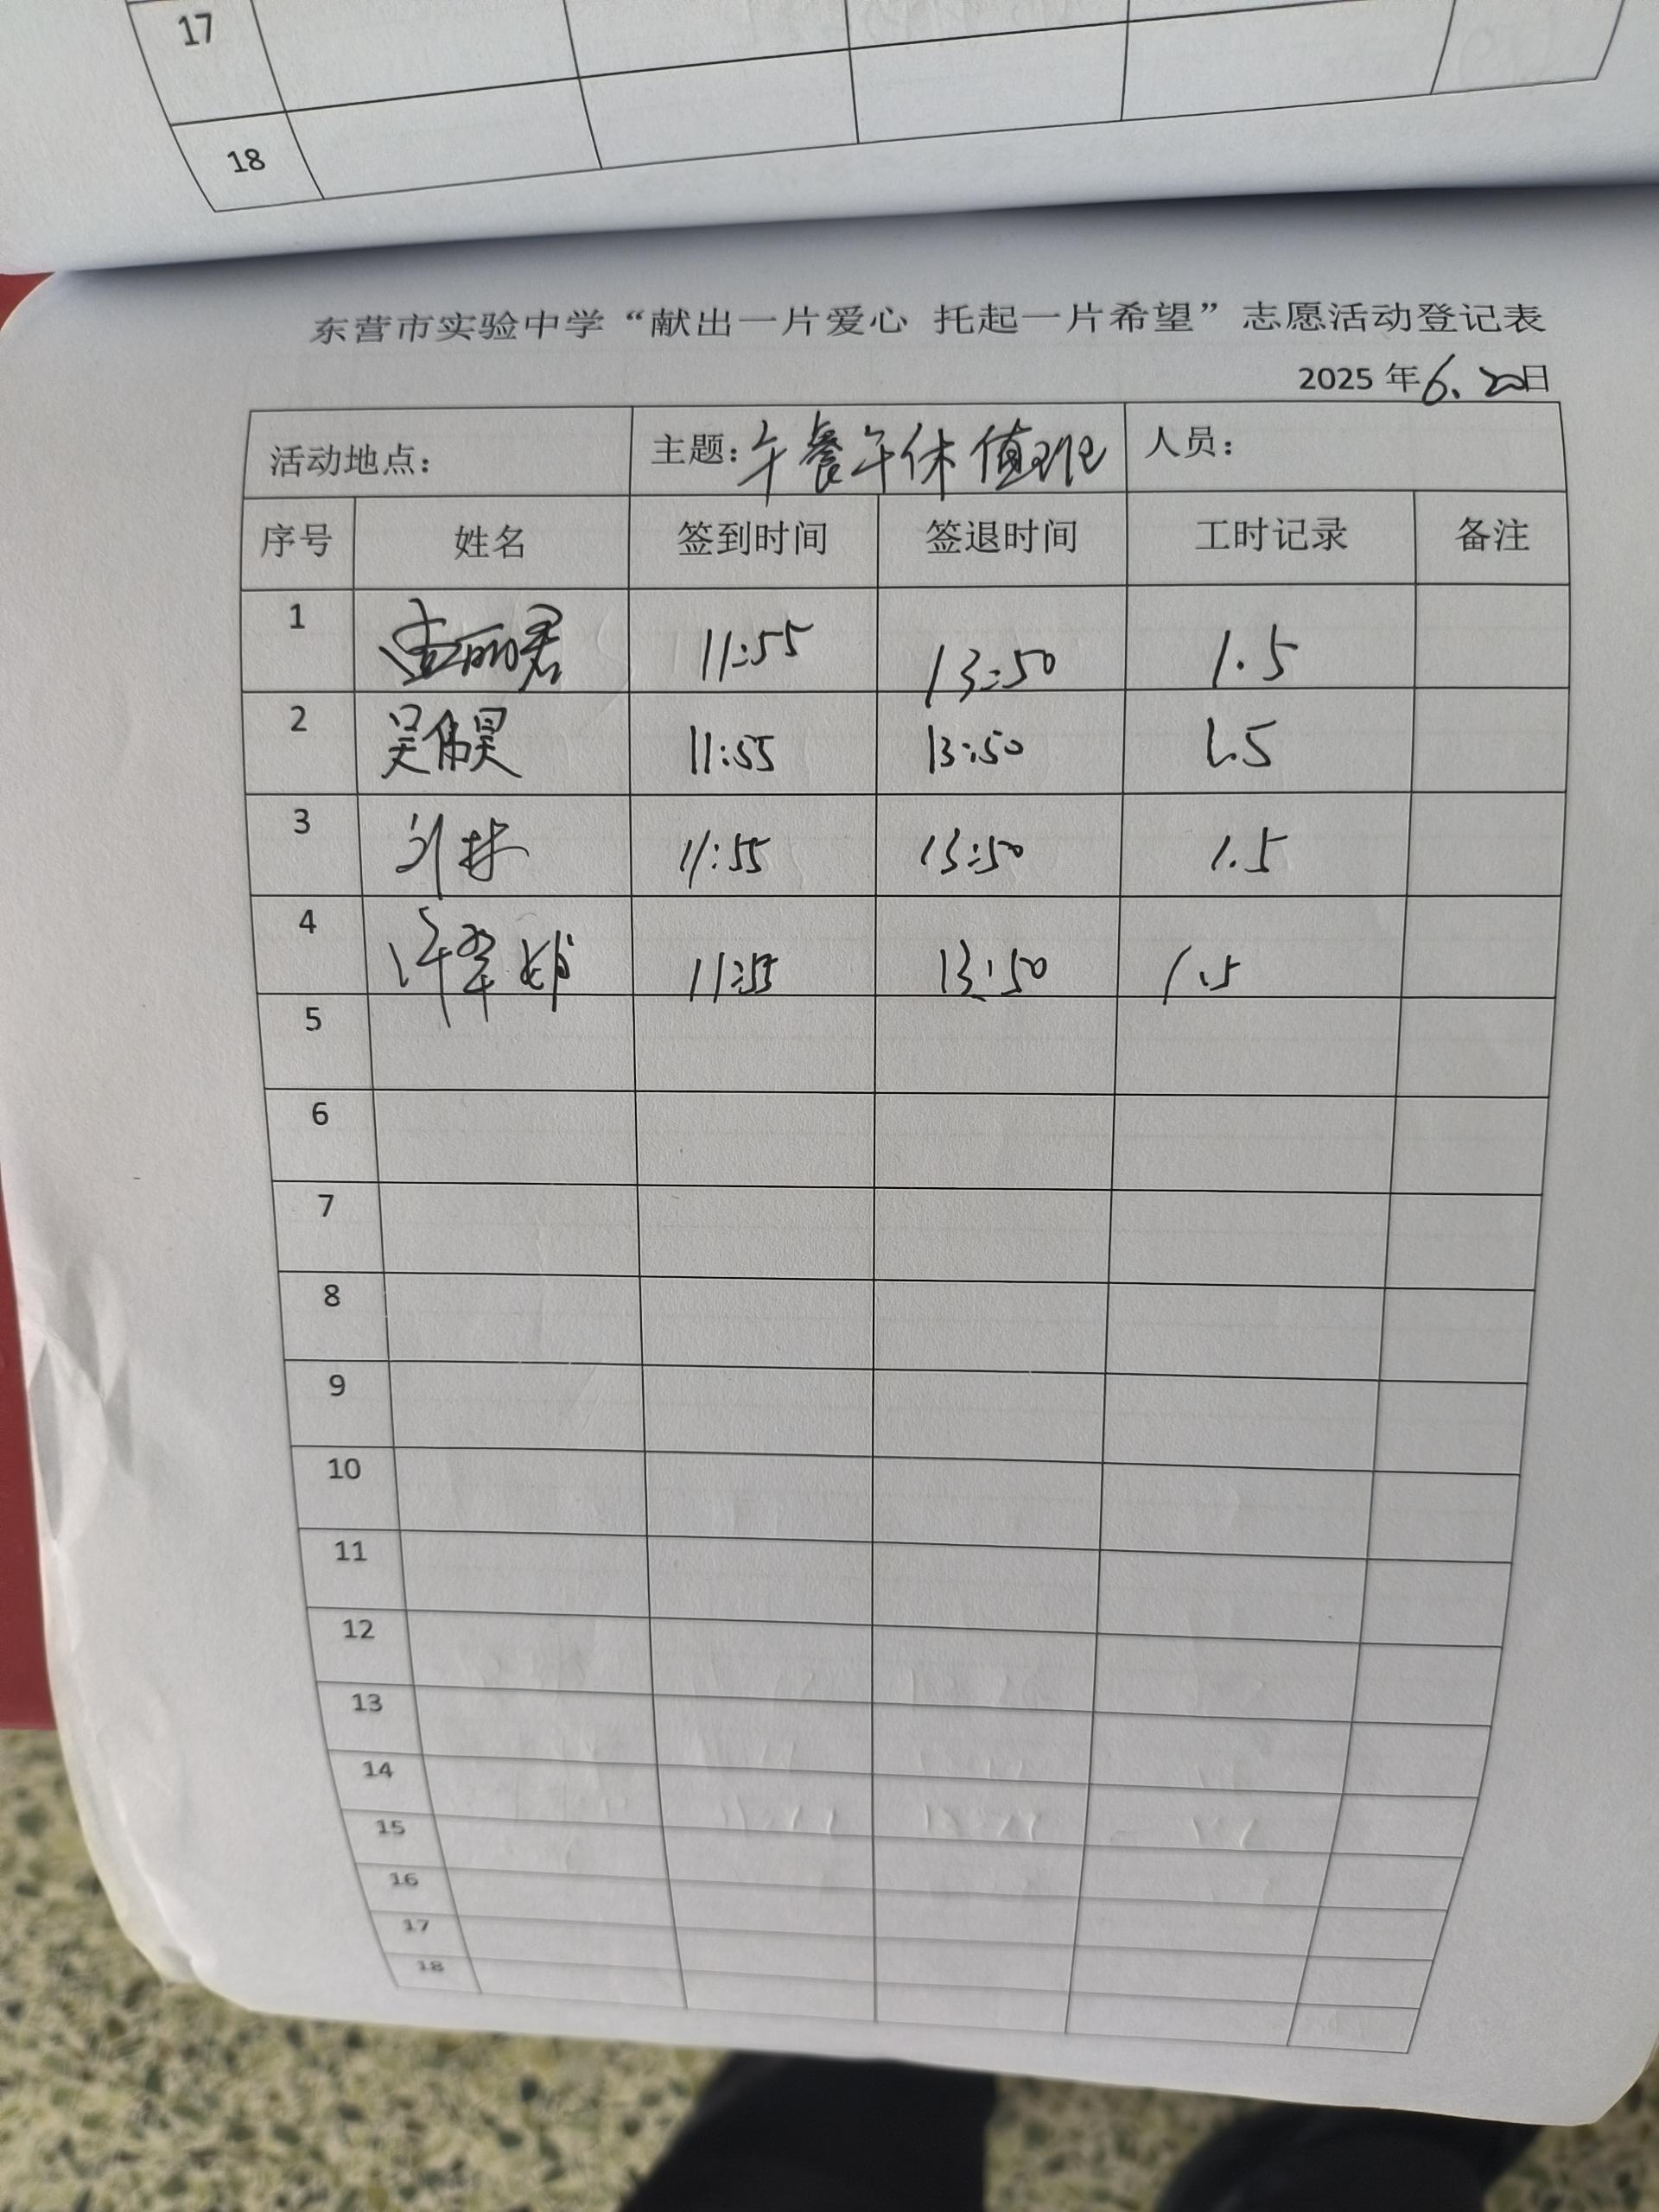 17
18
东营市实验中学“献出一片爱心 托起一片希望”志愿活动登记表
2025 年6.20日
活动地点： 主题:午餐午休值班 人员：
序号 姓名 签到时间 签退时间 工时记录 备注
1 孟丽君 11:55 13:50 1.5
2 吴伟昊 11:55 13:50 1.5
3 刘林 11:55 13:50 1.5
4 许翠娟 11:55 13:50 1.5
5
6
7
8
9
10
11
12
13
14
15
16
17
18